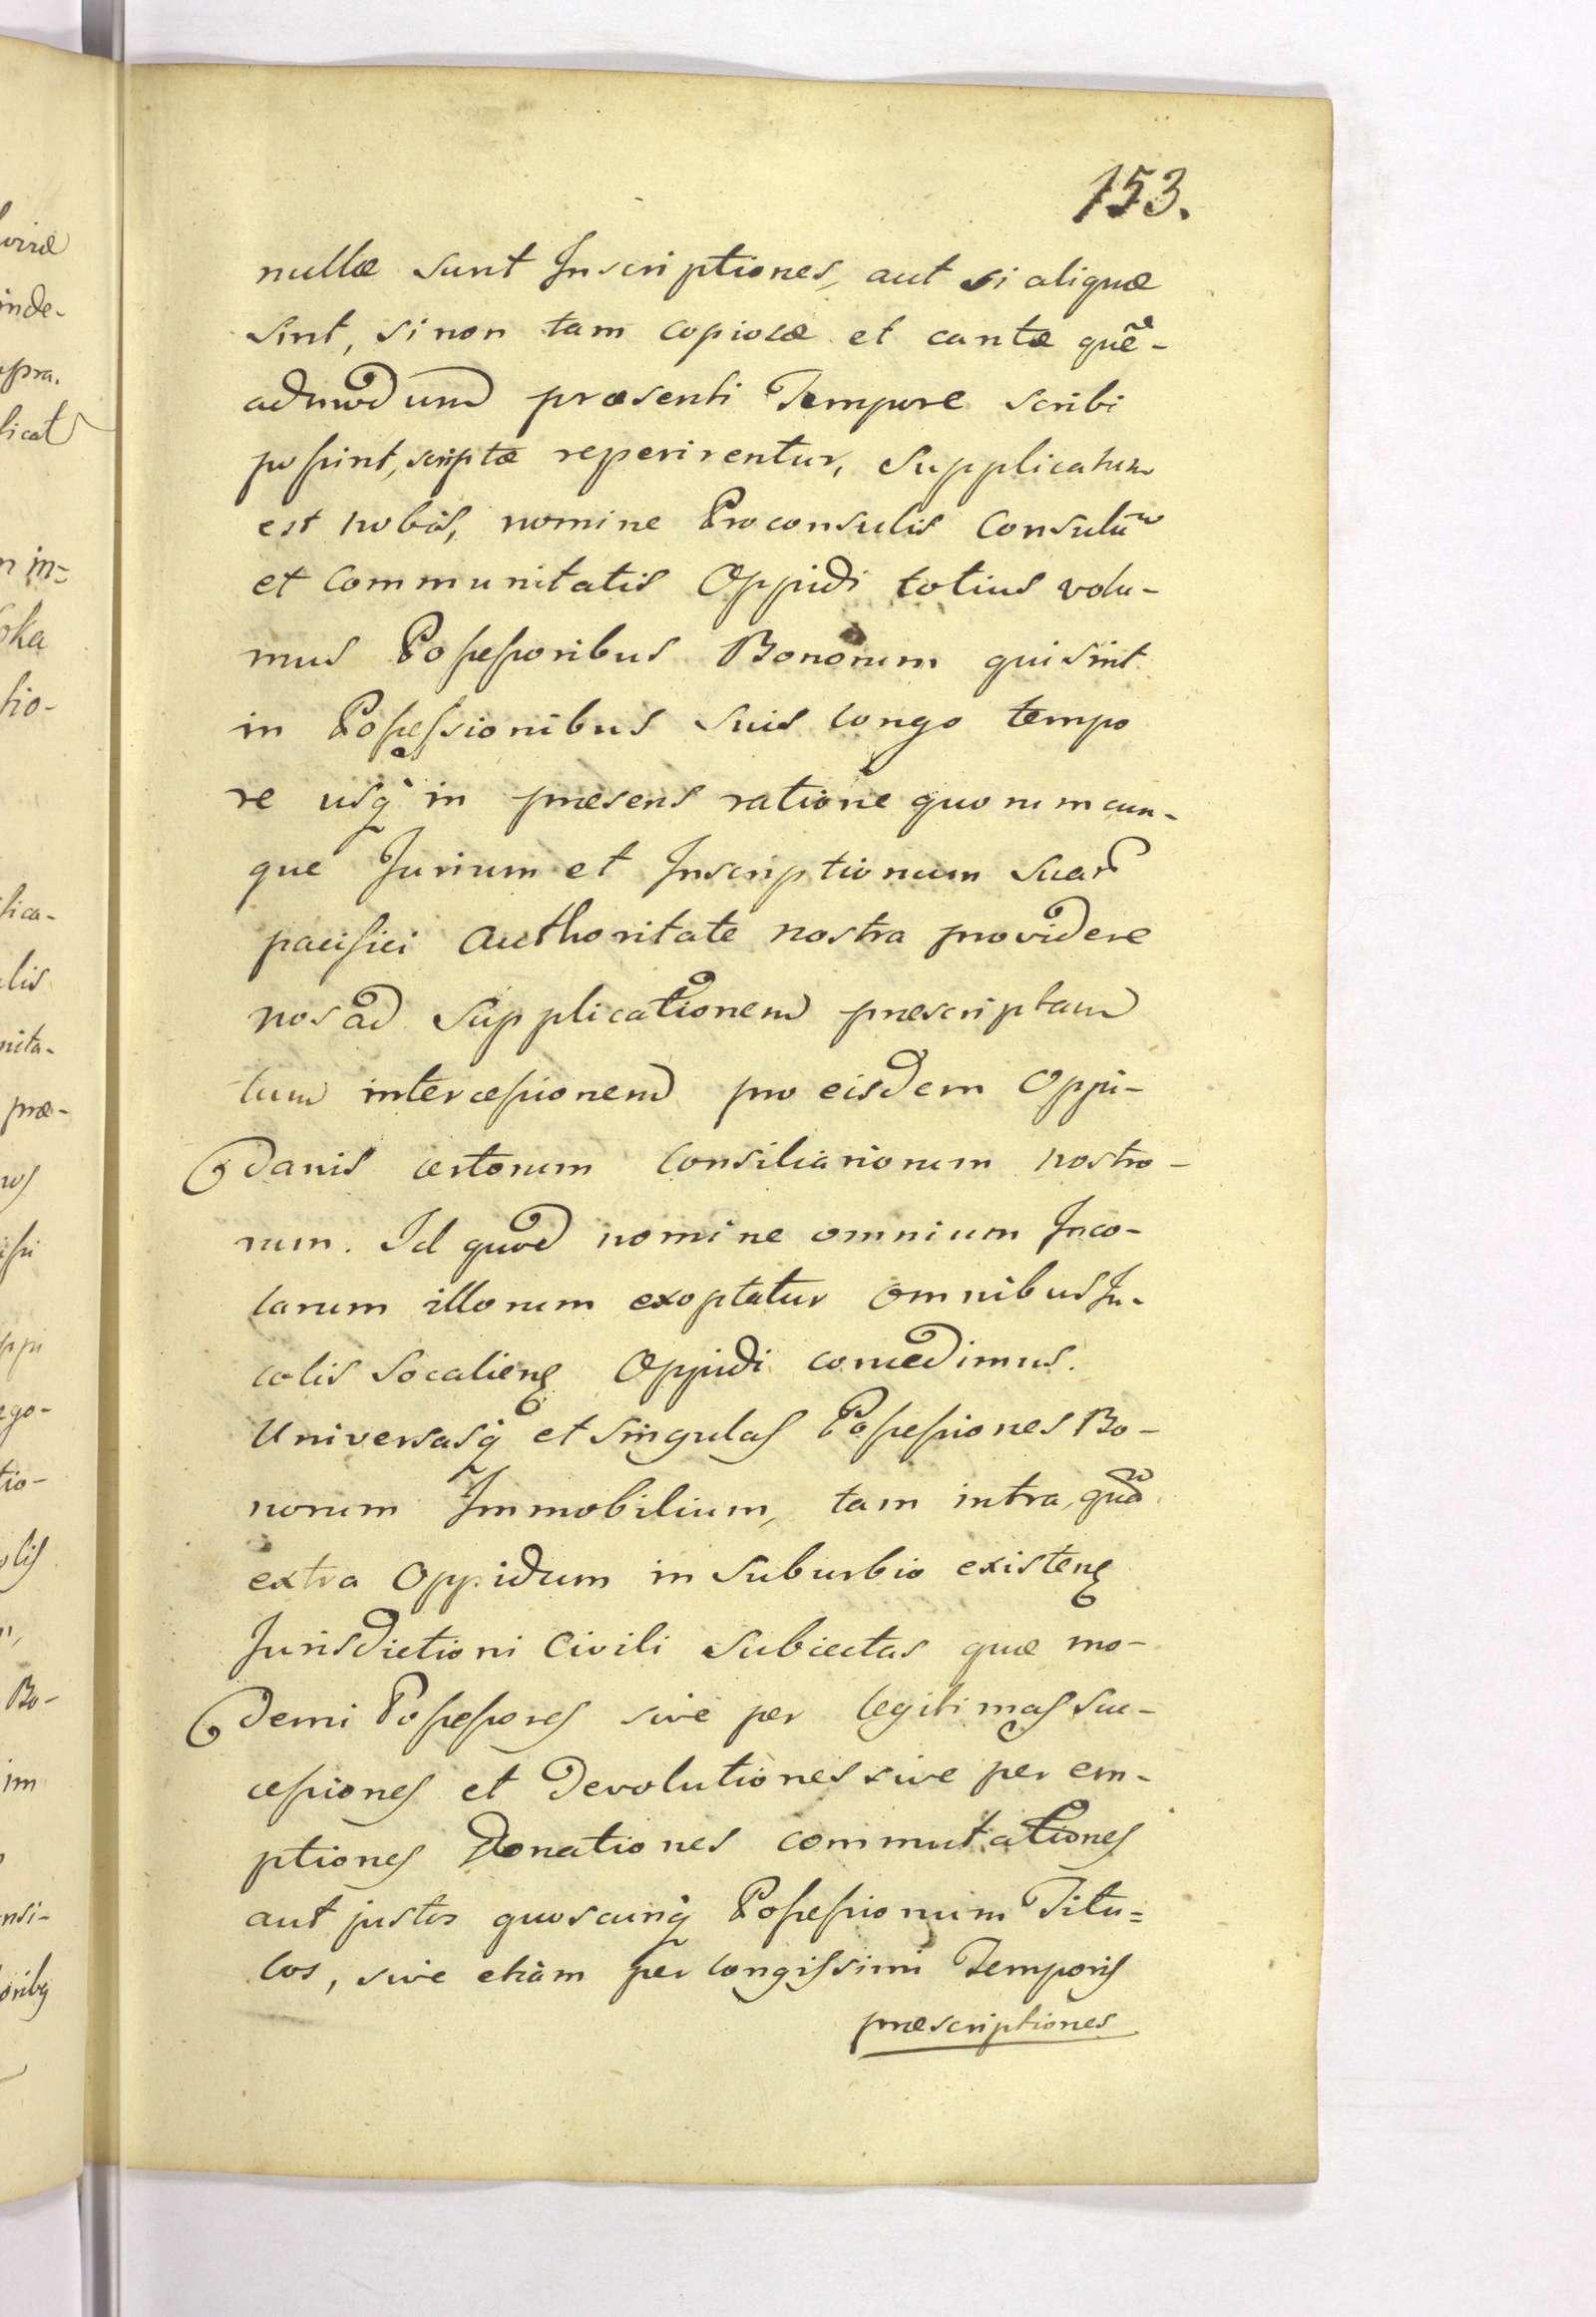 153.
nullæ sunt Inscriptiones, aut si aliquæ
sint, si non tam copiosæ et cautæ quē-
admodum præsenti Tempore scribi
poſsint, scriptæ reperirentur, Supplicatum
est nobis, nomine Proconsulis Consulū
et Communitatis Oppidi totius volu-
mus Poſseſsoribus Bonorum qui sint
in Poſseſsionibus suis longo tempo
re usq in præsens ratione quorumcun-
que Jurium et Inscriptionum suar
pacifici Authoritate nostra providere
nos ad Supplicationem præscriptam
tum interceſsionem pro eisdem Oppi-
danis certorum Consiliariorum nostro-
rum. Id quod nomine omnium Inco-
larum illorum exoptatur omnibus In-
colis Socalieñ Oppidi concedimus.
Universasq et singulas Poſseſsiones Bo-
norum Immobilium, tam intra, quā
extra Oppidum in Suburbio existeñ
Jurisdictioni Civili Subiectas quæ mo-
derni Poſseſsores sive per legitimas Suc-
ceſsiones et Devolutiones sive per em-
ptiones Donationes commutationes
aut justos quoscunq Poſseſsionum Titu=
los, sive etiam per longiſsimi Temporis
præscriptiones
lica-
lis
nita-
præ-
Bo-
im
nsi-